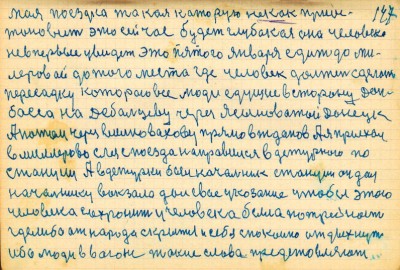 147
мая поездка такая каторую некак приос-
тоновит это сейчас будет глубакая она человека
невпервые увидет это пятого января ездит до ми-
лерова й до того места где человек должен сделать
пересадку котораю все люди едущие в сторону Дон-
басса на Дебальцеву через Ясиноватой Донецка
А потом через волновахову прямо в тданов А я приехал
в миллерово слез споезда направился в детурную по
станции А в детурки бали начальник станции он дал
начальнику вакзала дал свае указание чтобы этого
человека сохронит у человека была потребност
где либа от народа скрытся и себя спокоино отдыхнут
ибо люди в вагоне такие слова предстовляют